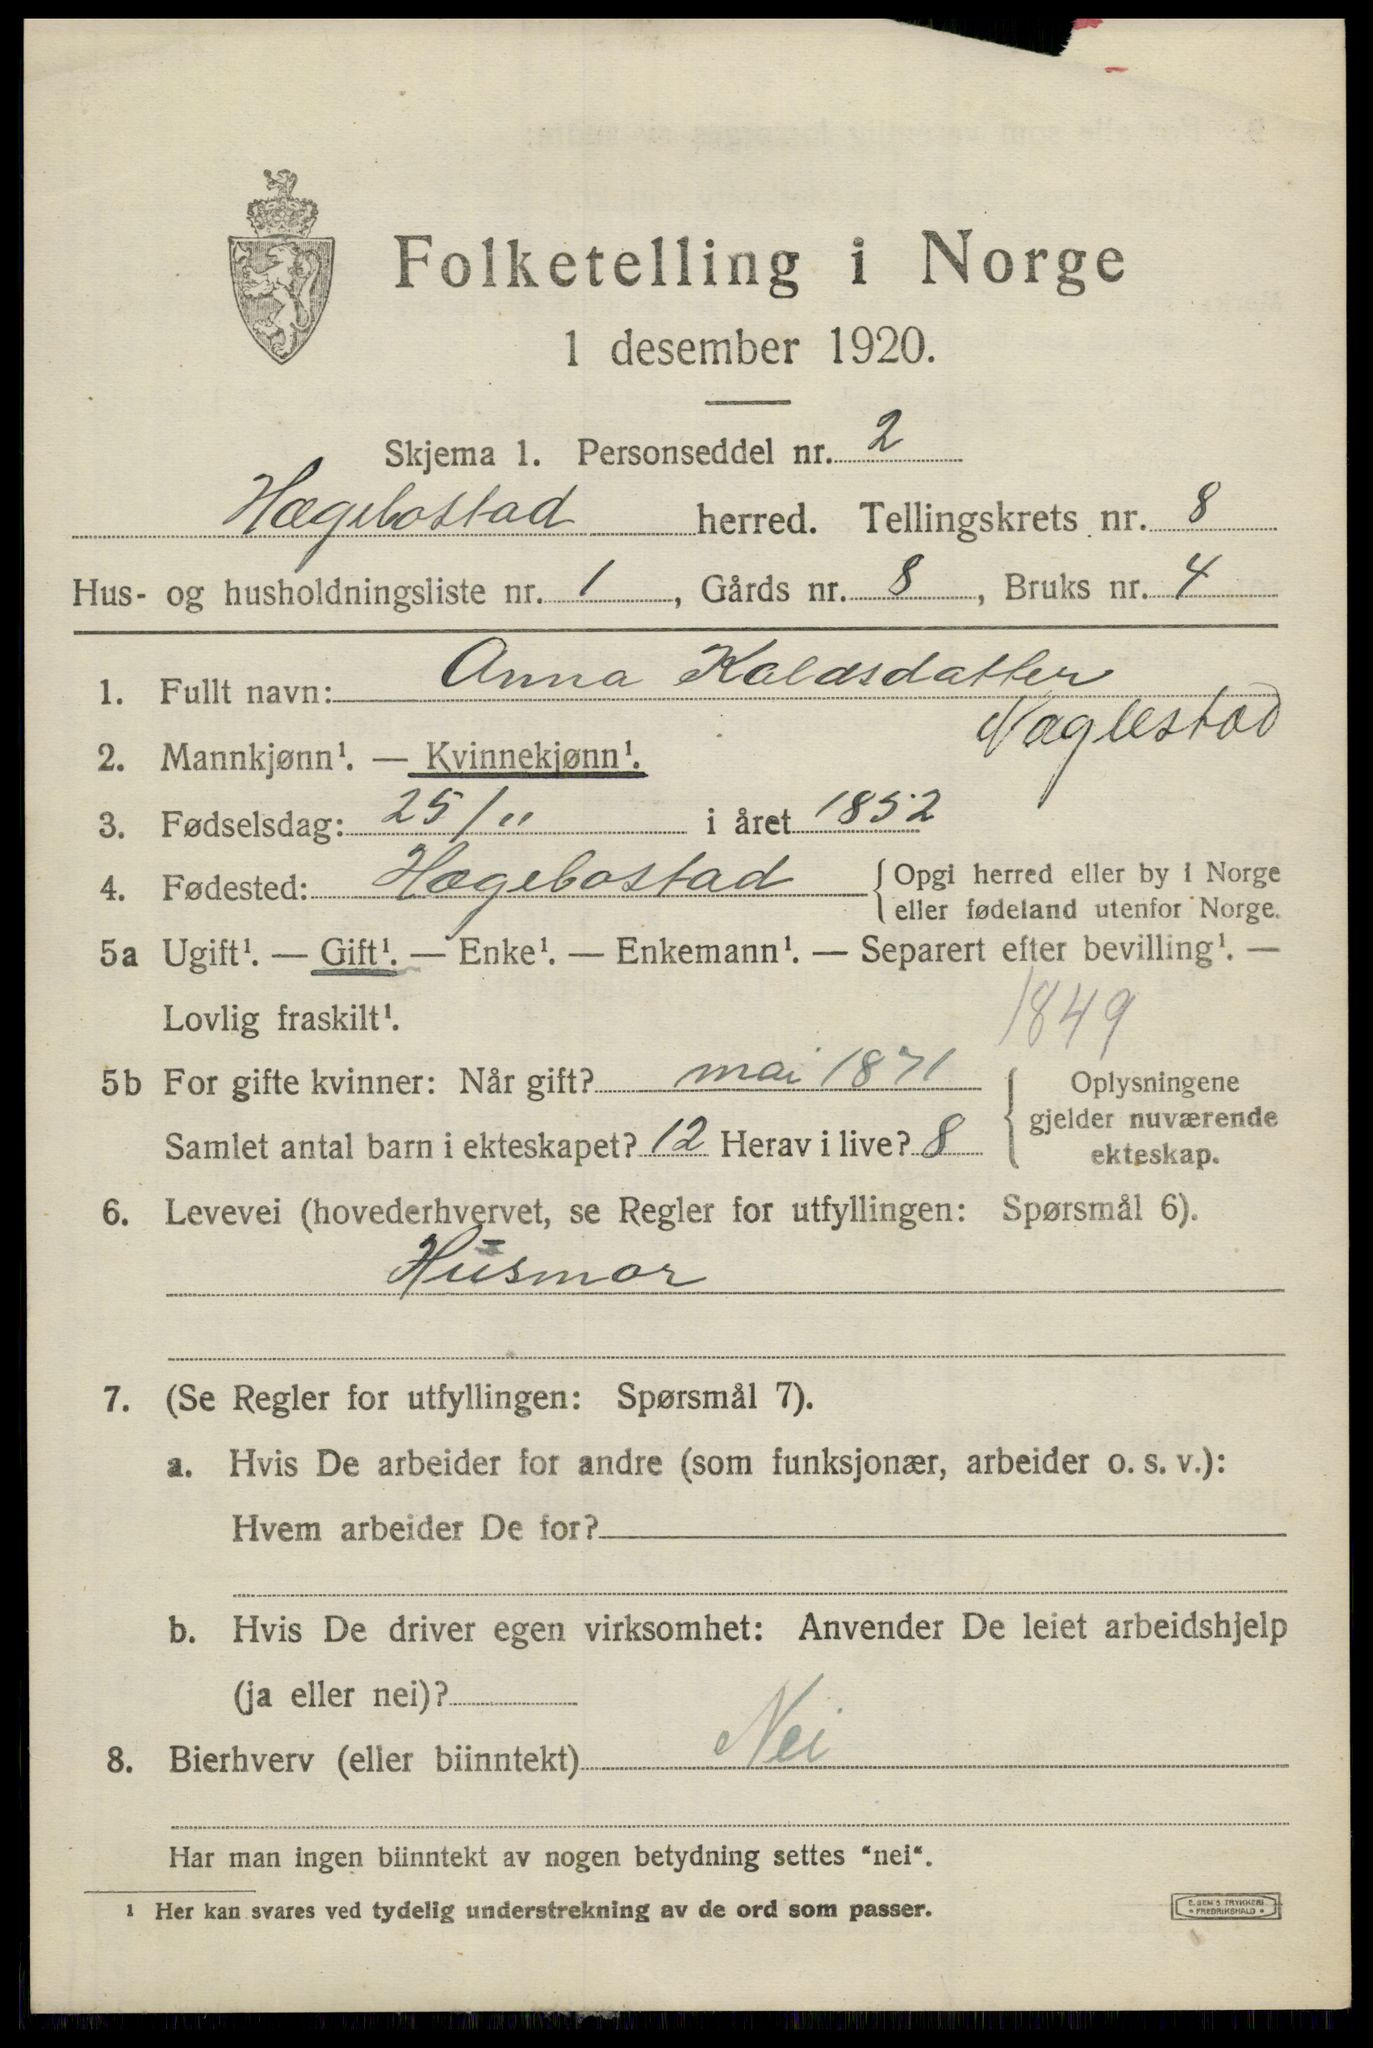 Folketelling i Norge
1 desember 1920.
Skjema 1. Personseddel nr. 2
Hægebostad herred. Tellingskrets nr. 8
Hus- og husholdningsliste nr. 1, Gårds nr. 8, Bruks nr. 4
1. Fullt navn: Anna Kalasdatter
Naglestad
2. Mannkjønn¹. — Kvinnekjønn¹.
3. Fødselsdag: 25/11 i året 1852
4. Fødested: Hægebostad {Opgi herred eller by i Norge
eller fødeland utenfor Norge.
5a Ugift¹. — Gift¹. — Enke¹. — Enkemann¹. — Separert efter bevilling¹. —
Lovlig fraskilt¹.
1849
5b For gifte kvinner: Når gift? mai 1871 { Oplysningene
gjelder nuværende
Samlet antal barn i ekteskapet? 12 Herav i live? 8
ekteskap.
6. Levevei (hovederhvervet, se Regler for utfyllingen: Spørsmål 6).
Husmor
7. (Se Regler for utfyllingen: Spørsmål 7).
a. Hvis De arbeider for andre (som funksjonær, arbeider o. s. v.):
Hvem arbeider De for?
b. Hvis De driver egen virksomhet: Anvender De leiet arbeidshjelp
(ja eller nei)?
8. Bierhverv (eller biinntekt) Nei
Har man ingen biinntekt av nogen betydning settes "nei".
1 Her kan svares ved tydelig understrekning av de ord som passer.
E. SEM'S TRYKKERI
• FREDRIKSHALD •